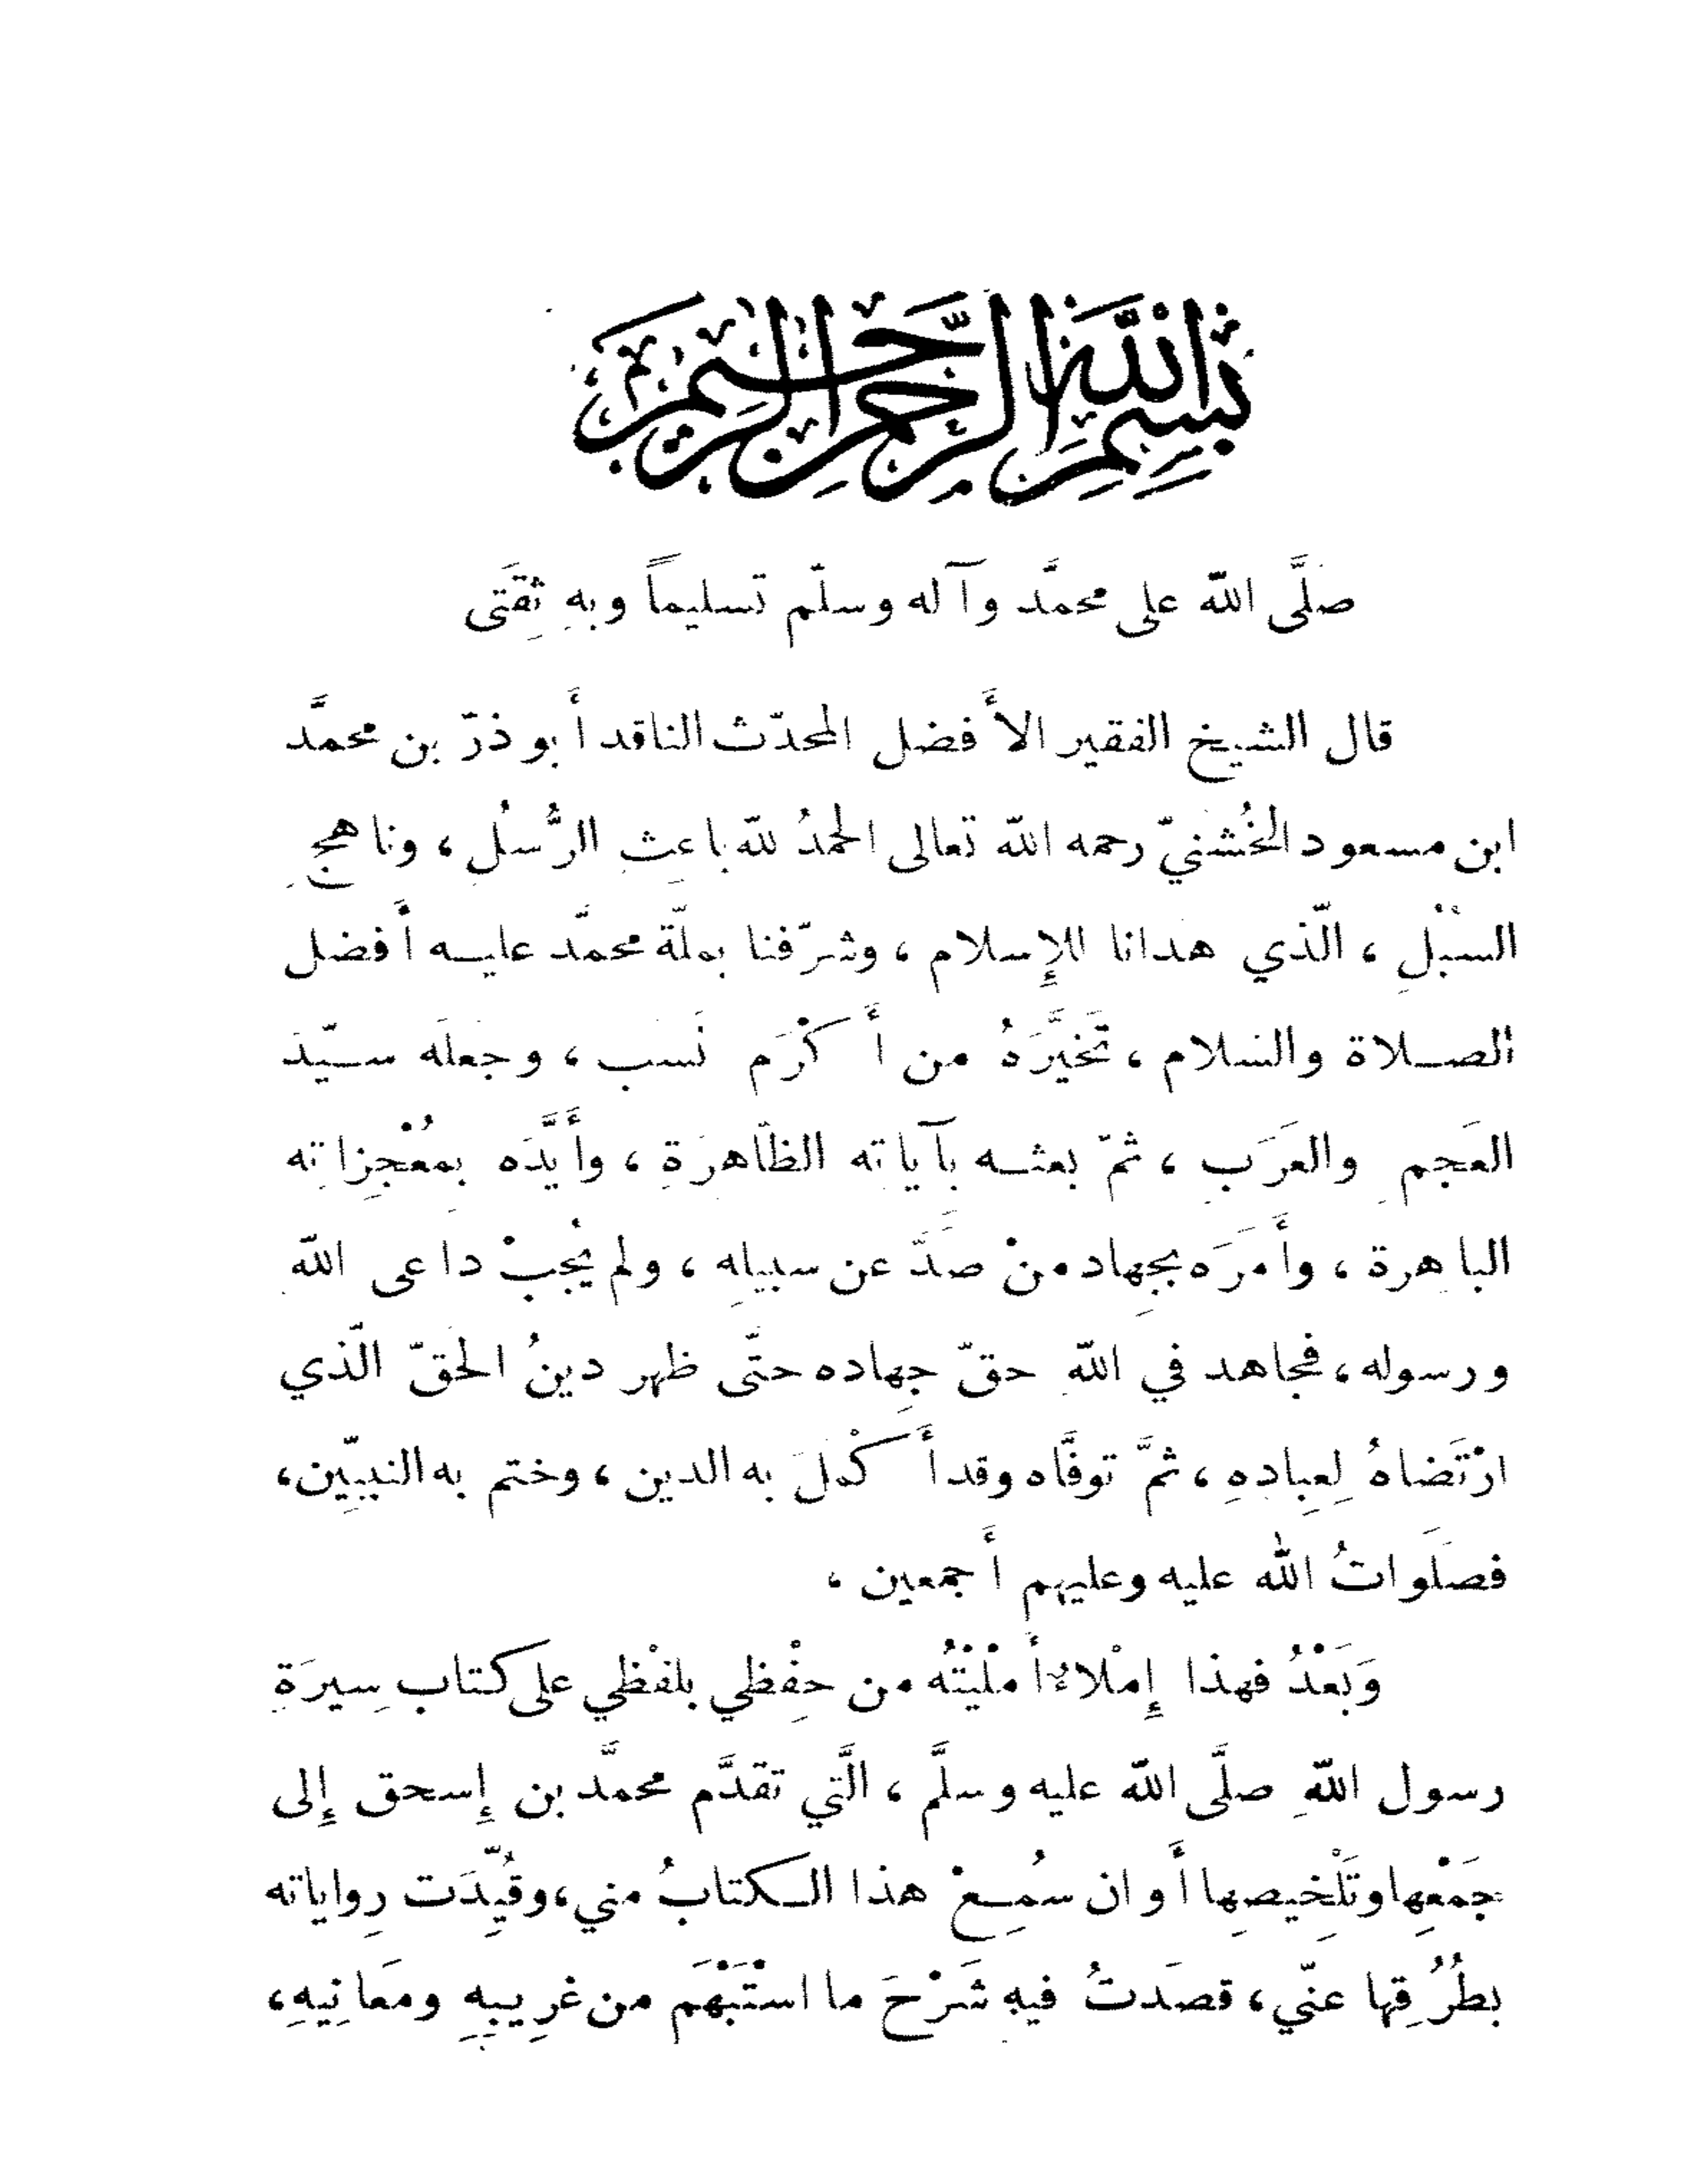 بسم الله الرحمن الرحيم
صلَّى اللّه على محمَّد وآله وسلّم تسليماً وبهِ ثِقَتى
قال الشيخ الفقير الأفضل المحدّث الناقد أبو ذرّ بن محمَّد
ابن مسعود الخُشَنيّ رحمه اللّه تعالى الحمدُ للّه باعثِ الرُّسُلِ ، وناهجِ
السبْلِ ، الّذي هدانا للإِسلام ، وشرّفنا بملّة محمَّد عليه أفضل
الصلاة والسلام ، تَخيَّرَهُ من أَكْرَم نَسب ، وجعلَه سيّدَ
العَجم والعَرَبِ ، ثمّ بعثه بآياتِه الظّاهرَةِ ، وأَيَّدَه بِمعْجِزاتِه
الباهرة ، وأَمرَه بجِهاد منْ صَدَّ عن سبيلِه ، ولم يُجبْ داعى اللّه
ورسوله ، فجاهد في اللّهِ حقّ جِهاده حتّى ظهر دينُ الحَقّ الّذي
ارْتَضاهُ لِعِبادِهِ ، ثمَّ توفَّاه وقد أَكْملَ به الدين ، وختم به النبيِّين،
فصلَواتُ الله عليه وعليهم أَجمعين ،
وَبَعْدُ فهذا إِمْلاءٌ أَمْلَيْتُه من حِفْظي بلفْظي على كتاب سِيرَةِ
رسول اللّهِ صلَّى اللّه عليه وسلَّم ، الَّتي تقدَّم محمَّد بن إِسحق إِلى
جَمْعِها وتَلْخيصِها أَوان سُمِعْ هذا الكتابُ مني، وقُيِّدَت رِواياته
بطُرُقِها عنّي، قصَدتُ فيهِ شَرْحَ ما اسْتَبْهَم من غرِيبِهِ ومعَانِيهِ،